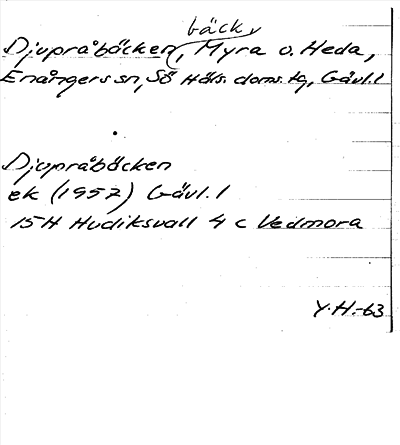 bäck,
Djupråbäcken, Myra o. Heda,
Enångers sn, Sö Häls. doms. tg, Gävl. l
Djupråbäcken
ek (1957) Gävl. l
15H Hudiksvall 4 c Vedmora
Y.H.-63